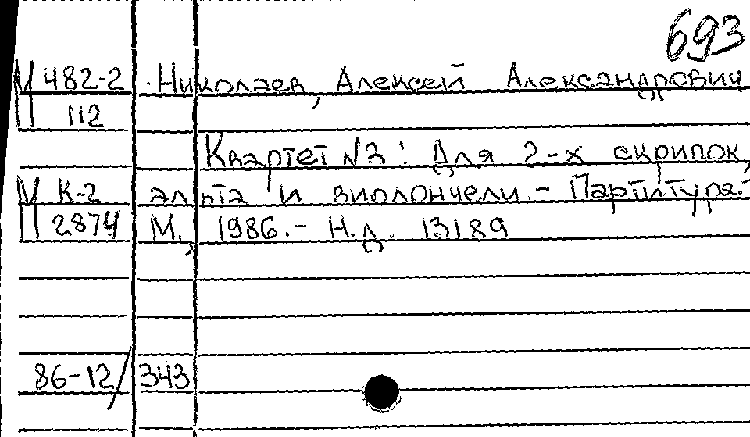 693
М 482-2 Николаев, Алексей Александрович
П 112
Квартет №3: Для 2-х скрипок,
М К-2 альта и виолончели. - Партитура. -
П 2874 М., 1986. - Н.д. 13189
86-12/343